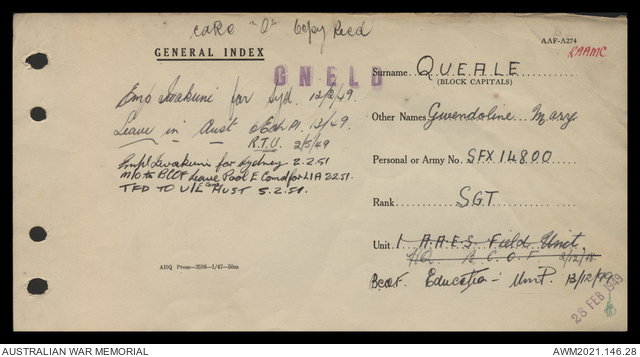 CARD "O" Copy Recd
AAF-A274
RAAMC
GENERAL INDEX
GNELD
Surname QUEALE
(BLOCK CAPITALS)
Emp Iwakuni for Syd. 12/2/49.
Leave in Aust 13/49.
R.T.U. 2/5/49
Other Names Gwendoline Mary
Empl Iwakuni for Sydney 2.2.51
M/O to BCOF Leave Pool E Comd for LIA 2251.
TFD TO U/L AUST 5.2.51.
Personal or Army No. SFX 14800
Rank SGT
Unit 1 A.A.E.S. Field Unit
HQ B.C.O.F. 3/12/48
B.C.O.F. Education Unit. 13/12/49
AHQ Press—3598—1/47—50m
28 FEB 1949
AUSTRALIAN WAR MEMORIAL
AWM2021.146.28